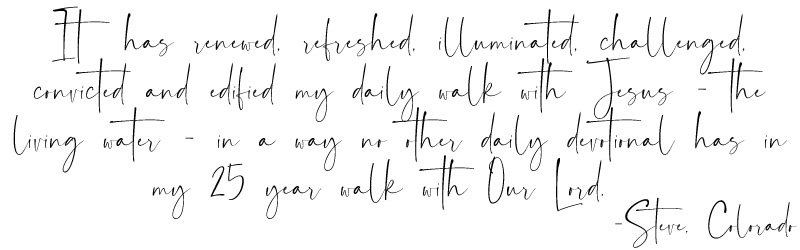 It has renewed, refreshed, illuminated, challenged,
convicted and edified my daily walk with Jesus - the
living water - in a way no other daily devotional has in
my 25 year walk with Our Lord.
-Steve, Colorado